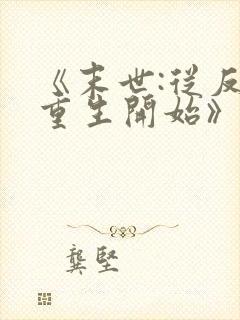 《末世:從反
重生開始》
龔堅